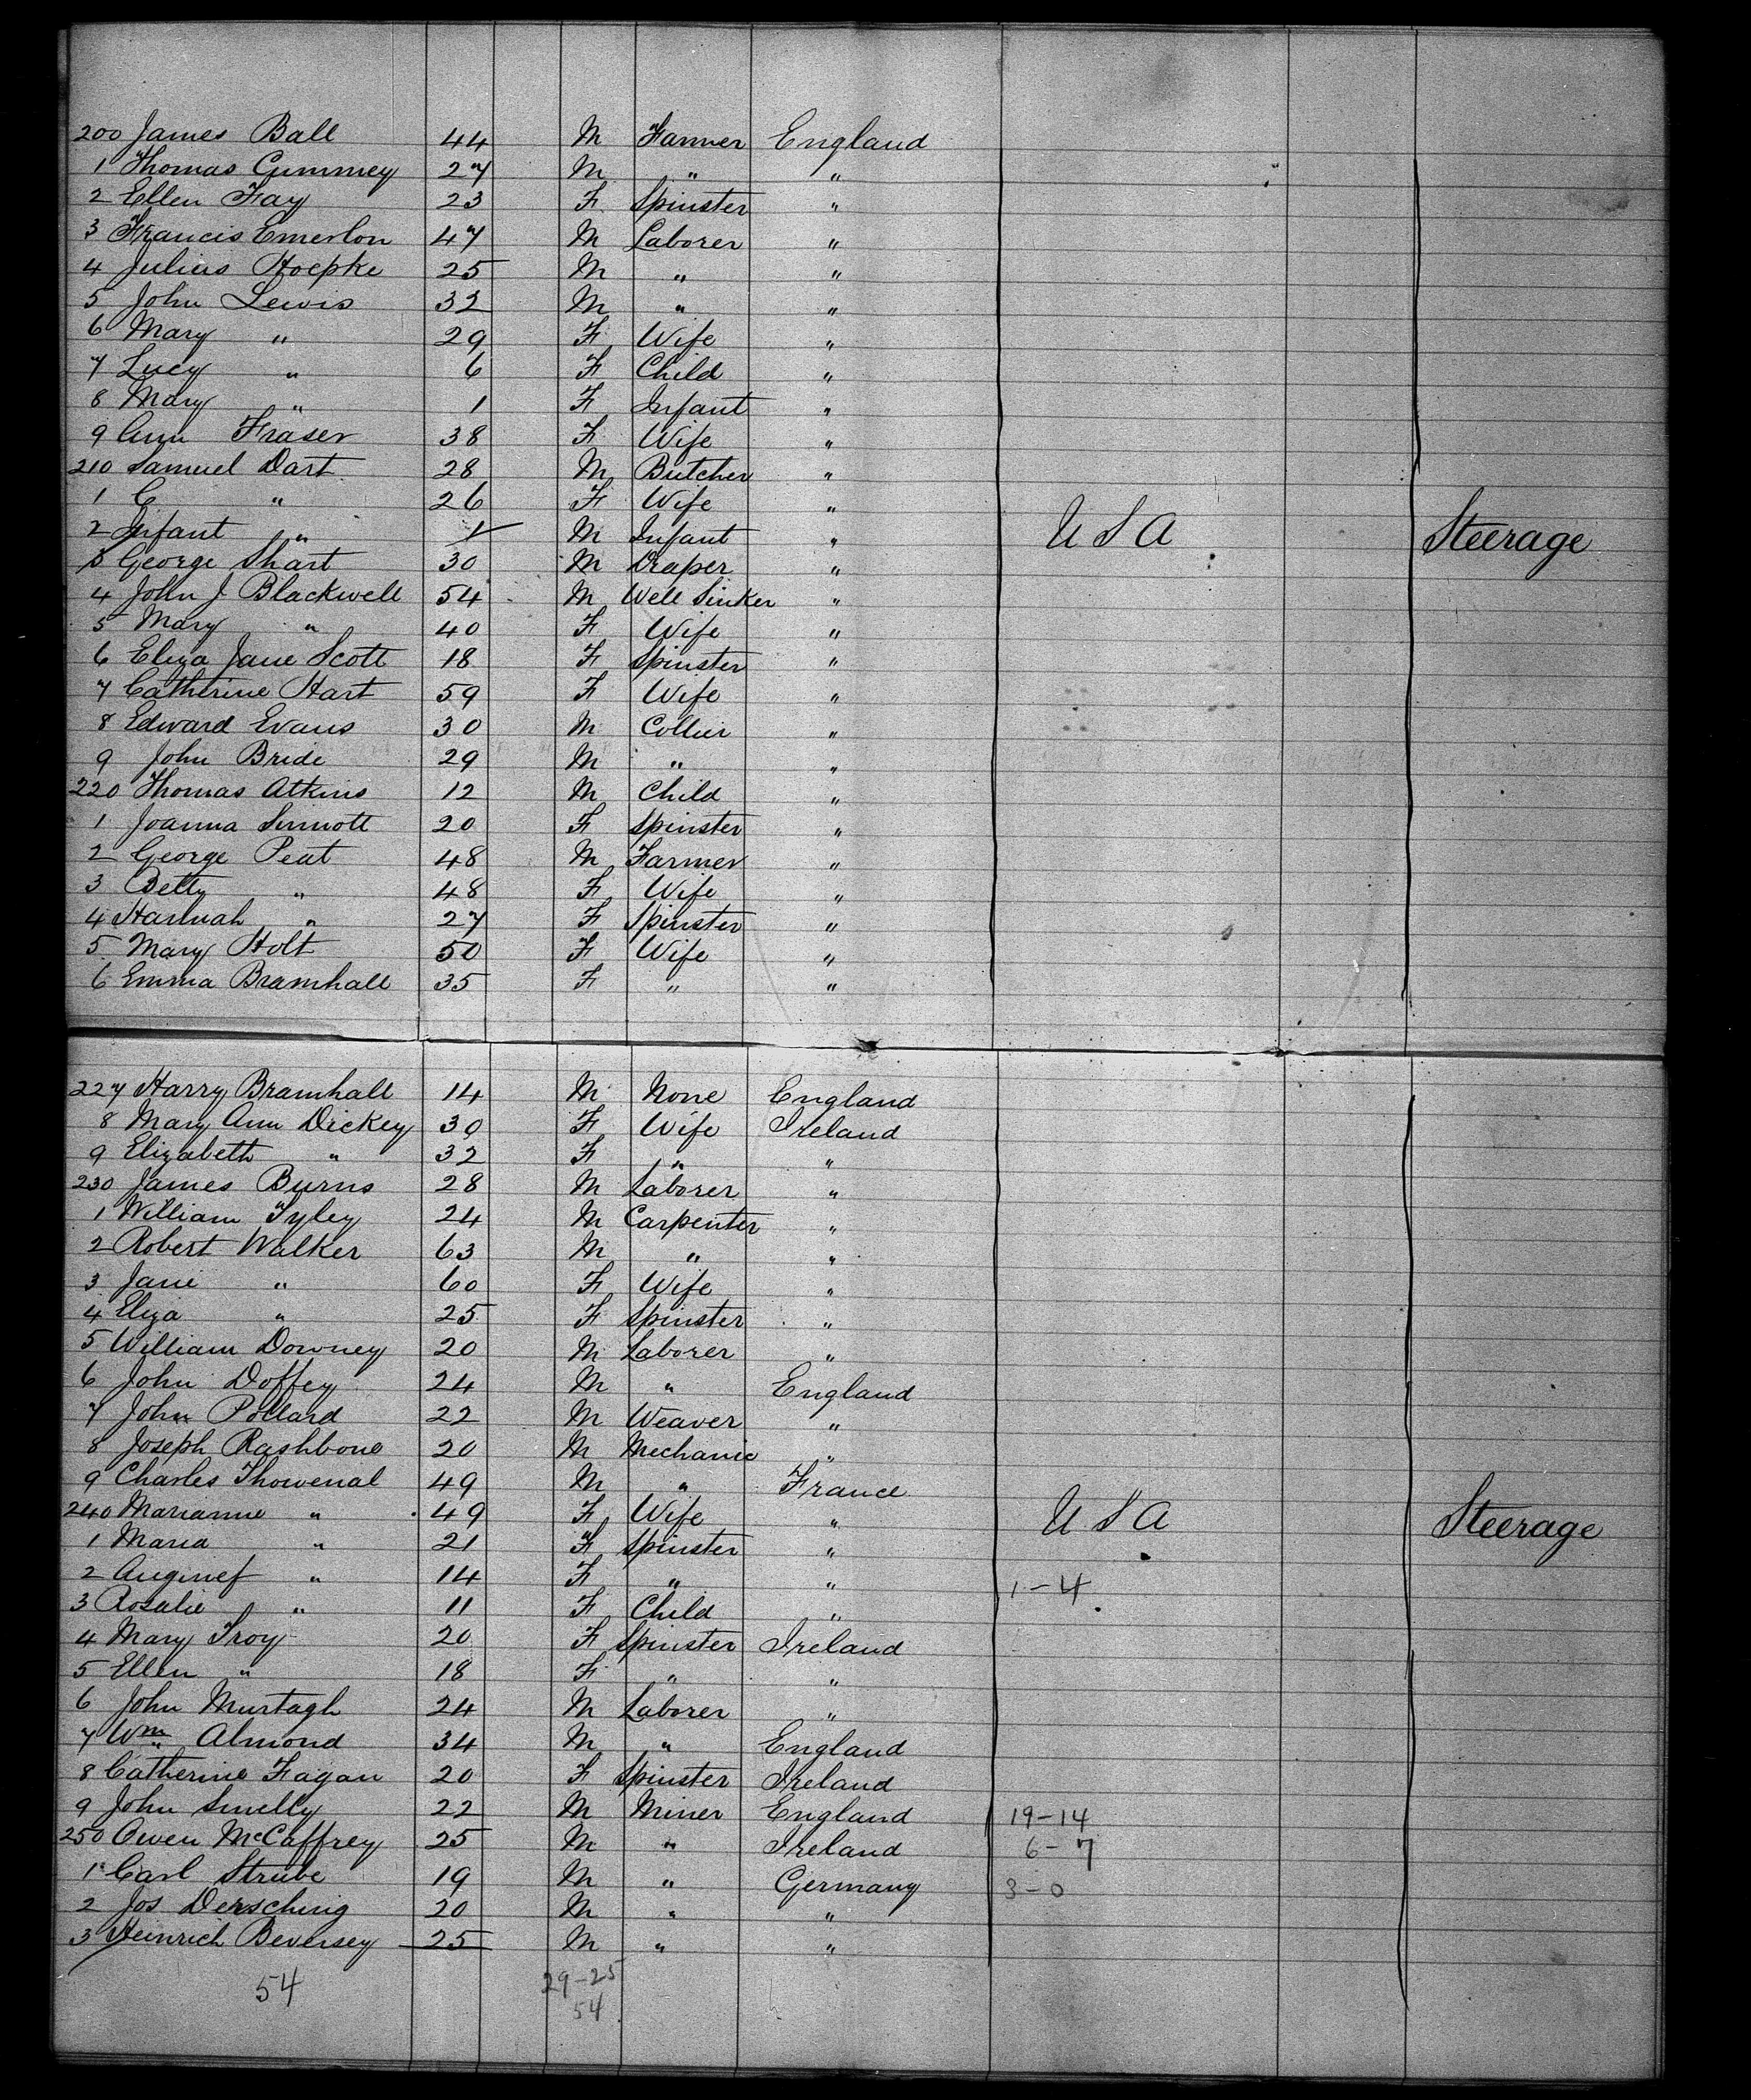 200 James Ball 44 M Farmer England
1 Thomas Cummey 27 M " "
2 Ellen Fay 23 F Spinster "
3 Francis Emerlon 47 M Laborer "
4 Julius Hoepke 25 M " "
5 John Lewis 32 M " "
6 Mary " 29 F Wife "
7 Lucy " 6 F Child "
8 Mary " 1 F Infant "
9 Ann Fraser 38 F Wife "
210 Samuel Dart 28 M Butcher "
1 C " 26 F Wife "
2 Infant " 1 M Infant " U S A Steerage
3 George Shart 30 M Draper "
4 John J Blackwell 54 M Well Sinker "
5 Mary " 40 F Wife "
6 Eliza Jane Scott 18 F Spinster "
7 Catherine Hart 59 F Wife "
8 Edward Evans 30 M Collier "
9 John Bride 29 M " "
220 Thomas Atkins 12 M Child "
1 Joanna Sinnott 20 F Spinster "
2 George Peat 48 M Farmer "
3 Betty " 48 F Wife "
4 Hannah " 27 F Spinster "
5 Mary Holt 50 F Wife "
6 Emma Bramhall 35 F " "
227 Harry Bramhall 14 M None England
8 Mary Ann Dickey 30 F Wife Ireland
9 Elizabeth " 32 F " "
230 James Burns 28 M Laborer "
1 William Tyley 24 M Carpenter "
2 Robert Walker 63 M " "
3 Jane " 60 F Wife "
4 Eliza " 25 F Spinster "
5 William Downey 20 M Laborer "
6 John Doffey 24 M " England
7 John Pollard 22 M Weaver "
8 Joseph Rashbone 20 M Mechanic "
9 Charles Thowenal 49 M " France
240 Marianne " 49 F Wife " U S A Steerage
1 Maria " 21 F Spinster "
2 " 14 F " " 1-4
3 Rosalie " 11 F Child "
4 Mary Troy 20 F Spinster Ireland
5 Ellen " 18 F " "
6 John Murtagh 24 M Laborer "
7 Wm Almond 34 M " England
8 Catherine Fagan 20 F Spinster Ireland
9 John Smelly 22 M Miner England 19-14
250 Owen McCaffrey 25 M " Ireland 6-7
1 Carl Strube 19 M " Germany 3-0
2 Jos Dersching 20 M " "
3 Heinrich Beversey 25 M " "
54 29-25
54